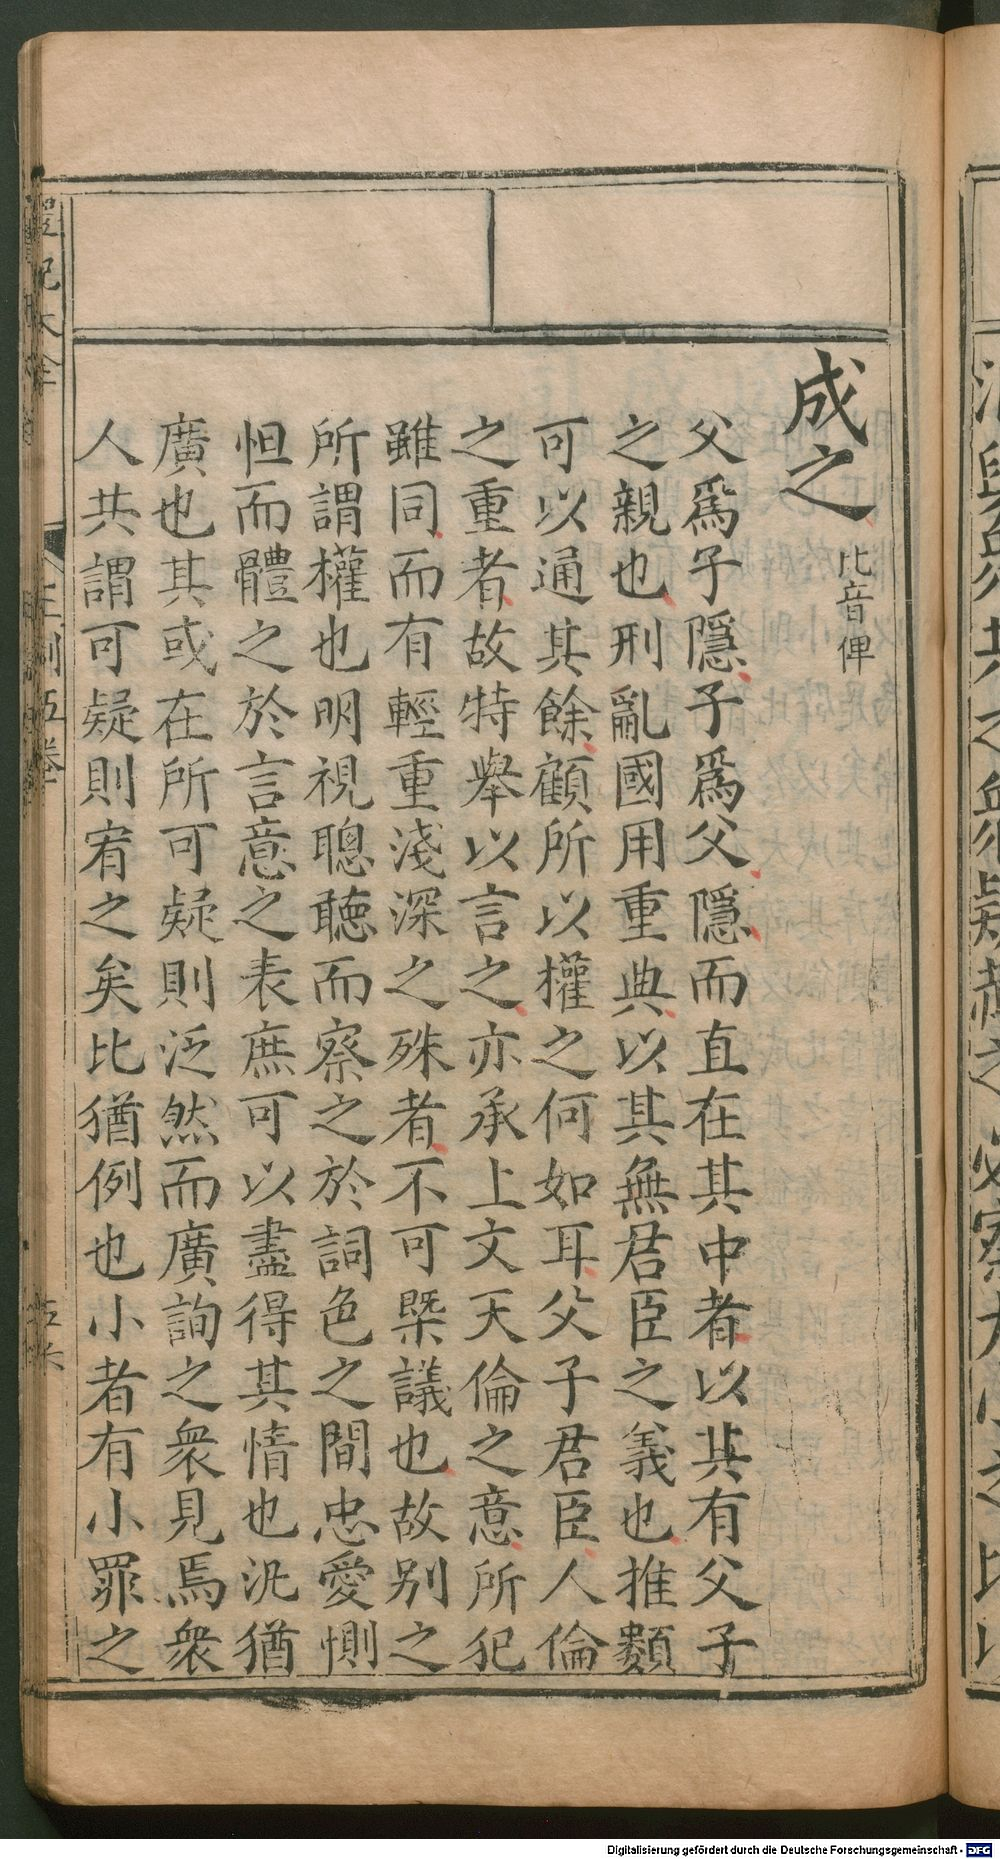 成之 比音俾
父爲子隱子爲父隱而直在其中者以其有父子
之親也刑亂國用重典以其無君臣之義也推類
可以通其餘顧所以權之何如耳父子君臣人倫
之重者故特舉以言之亦承上文天倫之意所犯
雖同而有輕重淺深之殊者不可槩議也故别之
所謂權也明視聰聽而察之於詞色之間忠愛惻
怛而體之於言意之表庶可以盡得其情也汎猶
廣也其或在所可疑則泛然而廣詢之衆見焉衆
人共謂可疑則宥之矣比猶例也小者有小罪之
記大全
王制五卷
Digitalisierung gefördert durch die Deutsche Forschungsgemeinschaft - DFG